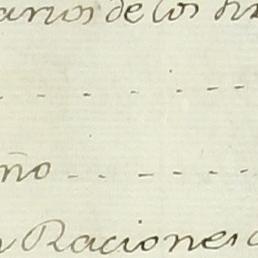 arios de los
- - - - - - -
ño - - - - - -
Raciones